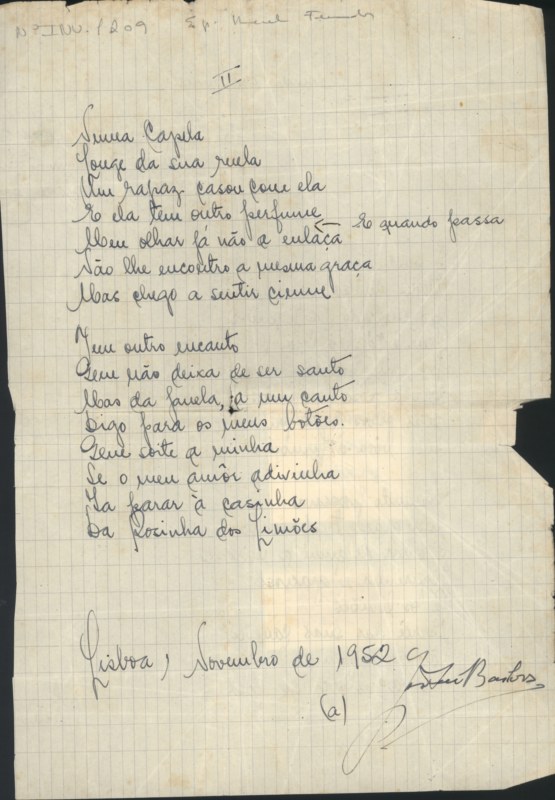 Nº INV. 1209
II
Numa Capela
Longe da sua ruela
Um rapaz casou com ela
E ela tem outro perfume
E quando passa
Meu olhar já não a enlaça
Não lhe encontro a mesma graça
Mas chego a sentir ciume
Tem outro encanto
Que não deixa de ser santo
Mas da janela, a um canto
Digo para os meus botões.
Que sorte a minha
Se o meu amôr adivinha
Ia parar à casinha
Da Rosinha dos Limões
Lisboa, Novembro de 1952
(a)